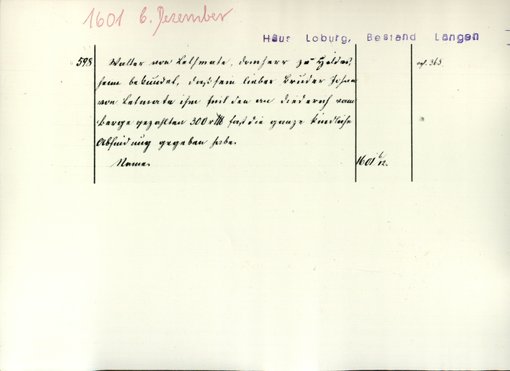 1601 6. Dezember
Haus Loburg, Bestand Langen
598
Walter von Letmate, Domherr zu Hildes,
heim bekundet, daß sein lieber Bruder Johan
von Letmate ihm mit den an Diederich vam
Berge gezahlten 300 rtlr fast die ganze kindliche
Abfindung gegeben habe.
Name.
1601 6/12.
cf. 363.